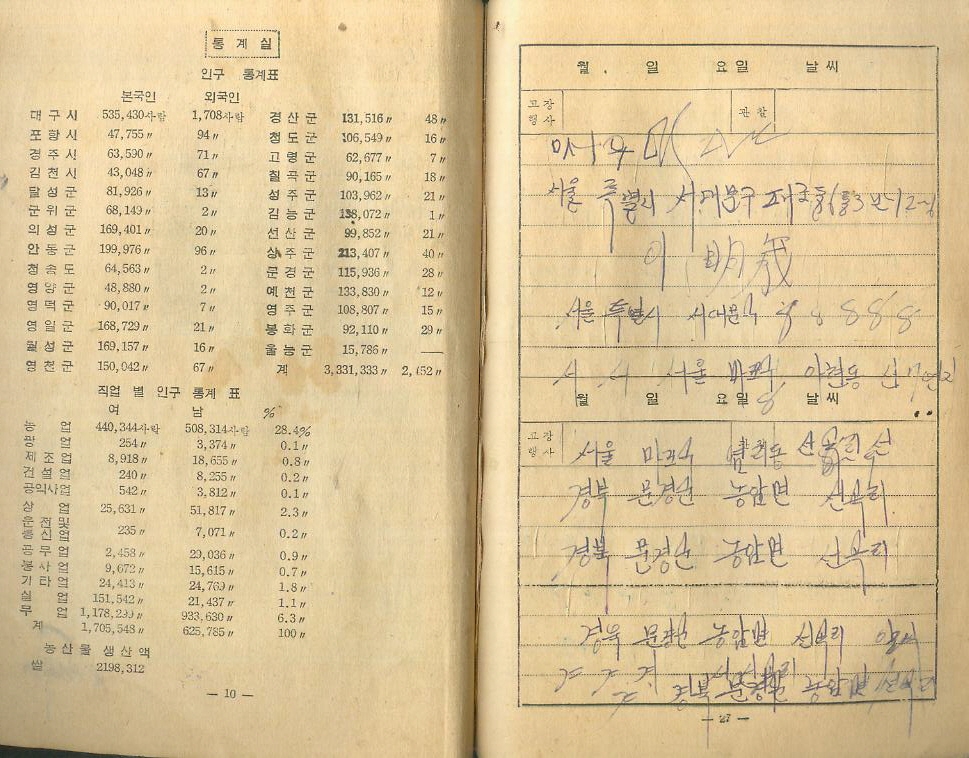 통계실
인구 통계표
본국인 외국인
대구시 535,430사람 1,708사람
포항시 47,755〃 94〃
경주시 63,590〃 71〃
김천시 43,048〃 67〃
달성군 81,926〃 13〃
군위군 68,149〃 2〃
의성군 169,401〃 20〃
안동군 199,976〃 96〃
청송도 64,563〃 2〃
영양군 48,880〃 2〃
영덕군 90,017〃 7〃
영일군 168,729〃 21〃
월성군 169,157〃 16〃
영천군 150,042〃 67〃
경산군 131,516〃 48〃
청도군 106,549〃 16〃
고령군 62,677〃 7〃
칠곡군 90,165〃 18〃
성주군 103,962〃 21〃
김능군 138,072〃 1〃
선산군 99,852〃 21〃
상주군 213,407〃 40〃
문경군 115,936〃 28〃
예천군 133,830〃 12〃
영주군 108,807〃 15〃
봉화군 92,110〃 29〃
울능군 15,786〃 —
계 3,331,333〃 2,652〃
직업별 인구 통계표
여 남 %
농업 440,344사람 508,314사람 28.4%
광업 254〃 3,374〃 0.1〃
제조업 8,918〃 18,655〃 0.8〃
건설업 240〃 8,255〃 0.2〃
공익사업 542〃 3,812〃 0.1〃
상업 25,631〃 51,817〃 2.3〃
운전및
통신업 235〃 7,071〃 0.2〃
공무업 2,458〃 29,036〃 0.9〃
봉사업 9,672〃 15,615〃 0.7〃
기타업 24,413〃 24,769〃 1.8〃
실업 151,542〃 21,437〃 1.1〃
무업 1,178,299〃 933,630〃 6.3〃
계 1,705,548〃 625,785〃 100〃
농산물 생산액
쌀 2198,312
— 10 —
월. 일 요일 날씨
고장
행사
관찰
서울 특별시 서대문구
李 明
서울 특별시 서대문구 8 8 8 8 8
서울 마포구 아현동
월 일 요일 날씨
고장
행사
서울 마포구
경북 문경군 농암면 선곡리
경북 문경군 농암면 선곡리
경북 문경군 농암면 선곡리
경북 문경군 농암면
— 27 —